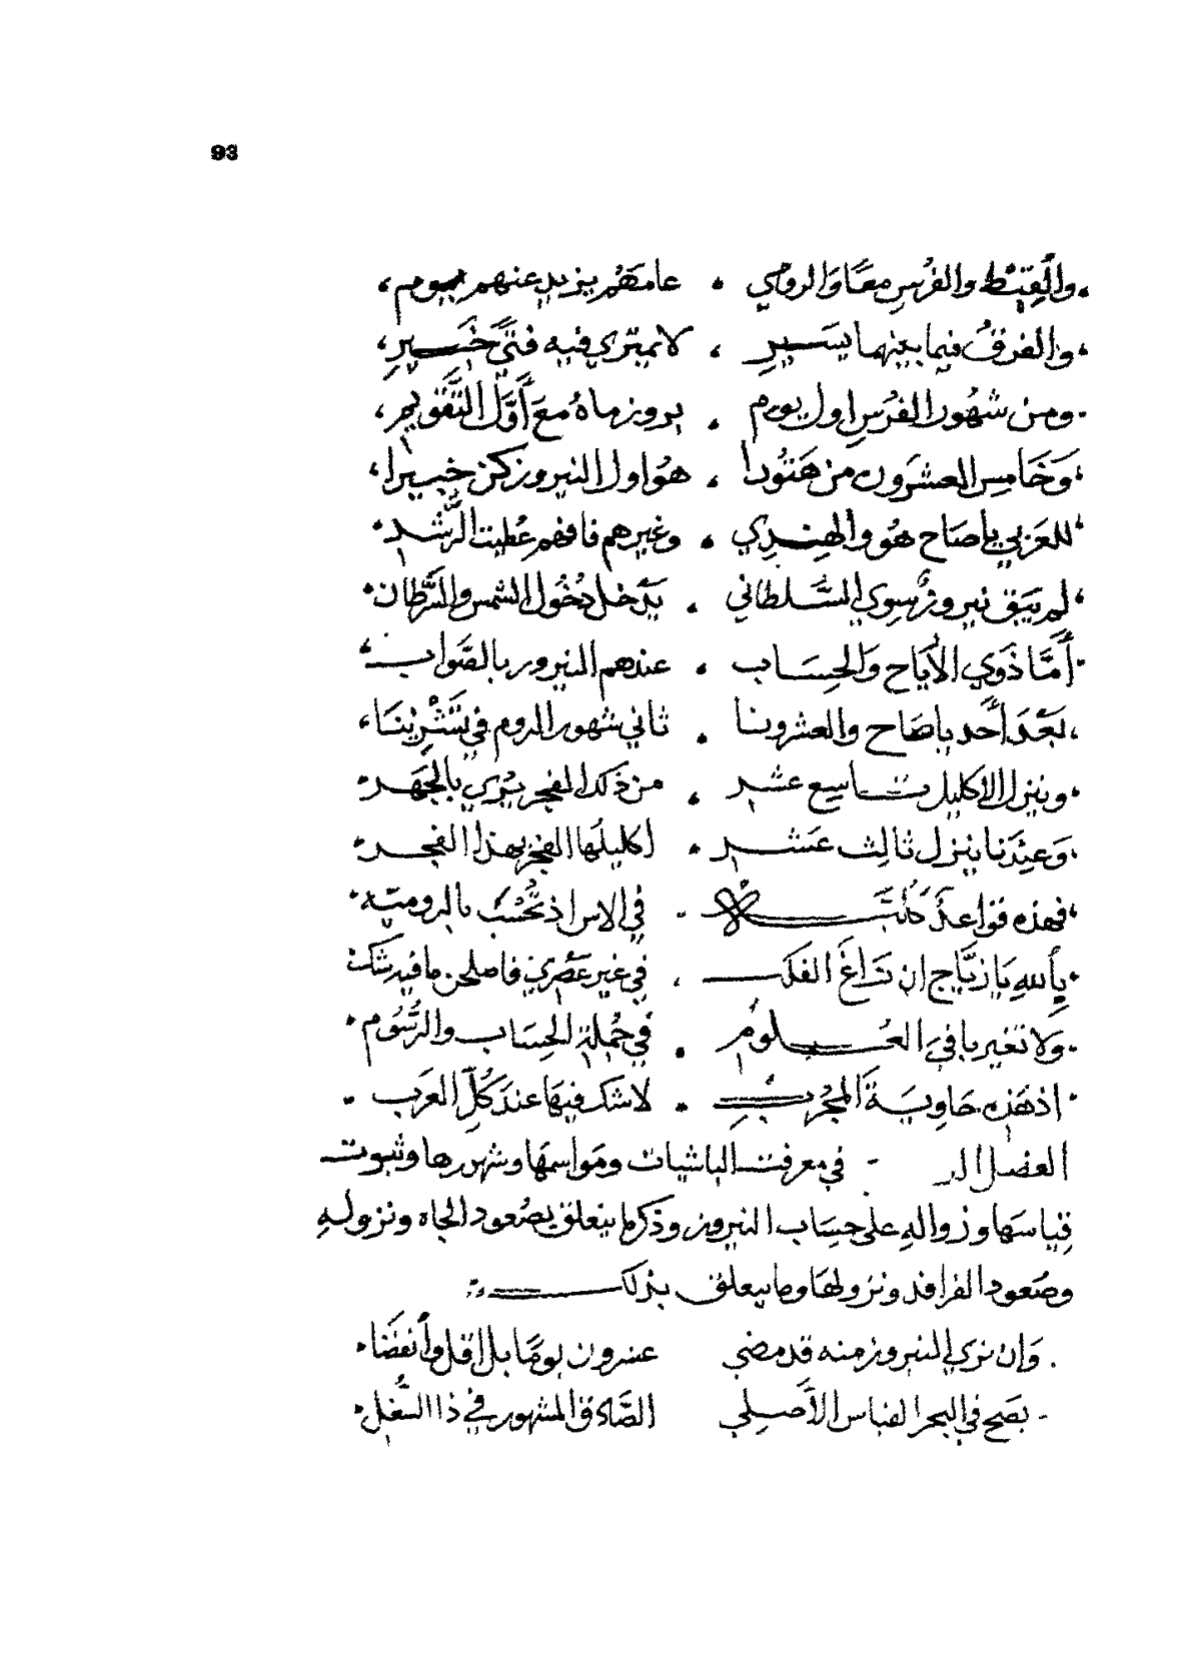 93
والقِبْط والفُرْسِ معًا وَالرومي ، عامهُم يزيد عنهم بيوم،
والفرقُ فيما بينهما يَسيرِ ، لا يمتري فيه فتًى خَبيرِ
ومن شهُور الفُرْسِ اول يوم . بروز ماهُ معَ أَوَّل التَّقويم
وَخَامِس العشرون من هَتُورا ، هوُ اول النيروز كن خبيرا
للعَربي ياصَاح هُو والهندي ، وغيرهم فافهم عُطيت الرَّشد
لم يَبق نيروزٌ سِوي السُّلطاني ، يَدْخل دُخُول الشمس والسَّرطان
أَمَّا ذَوي الأَرْيَاح وَالحِسَاب ، عندهم النيروز بالصَّواب
بَعْدَ أحَد ياصَاح والعشرونا . ثاني شهور الروم في تَشْرِيننَا
وينزل الاكليل تاسِع عشر . من ذَلك الفجر يُري بالجَهَر
وَعيْدَنا ينزل ثالث عَشر . اكليلُها الفجر بهذا الفجر
فهذه قواعدٌ - في الاس اذ تُحْسَب بالروميّه
بِاللهِ يَا زيَّاج ان زَاغَ الفلك ، في غير عَصْري فاصلحن ما فيه شك
ولا تغير باقيَ العُلومُ . في جُملة الحِسَاب والرُّسُوم
اذ هَذه حَاويَةَ المُجرَّب . لا شك فيها عندَ كُلِّ العَرَب
الفصل - في معرفت الباشيات ومَواسمهَا وشهورها وثبوت
قِياسَها وزوالهِ على حِسَاب النيروز وذكر ما يتعلق بصُعود الجاه ونزولهِ
وصُعود الفراقد ونزولها وما يتعلق بذلك
وَإن تري النيروز منه قد مضي عشرون يومًا بل اقل وأنقضَا
يصَح في البحر القياس الأَصلي الصَّادق المشهور في ذا الشُّغل